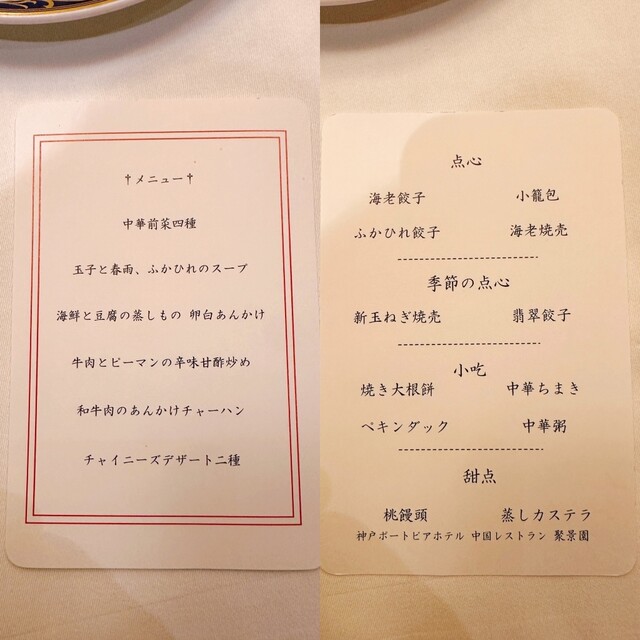 †メニュー†
中華前菜四種
玉子と春雨、ふかひれのスープ
海鮮と豆腐の蒸しもの 卵白あんかけ
牛肉とピーマンの辛味甘酢炒め
和牛肉のあんかけチャーハン
チャイニーズデザート二種
点心
海老餃子 小籠包
ふかひれ餃子 海老焼売
季節の点心
新玉ねぎ焼売 翡翠餃子
小吃
焼き大根餅 中華ちまき
ペキンダック 中華粥
甜点
桃饅頭 蒸しカステラ
神戸ポートピアホテル 中国レストラン 聚景園